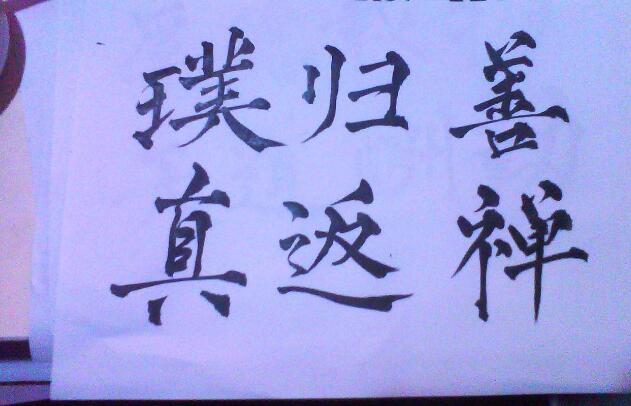 善归璞
禅返真